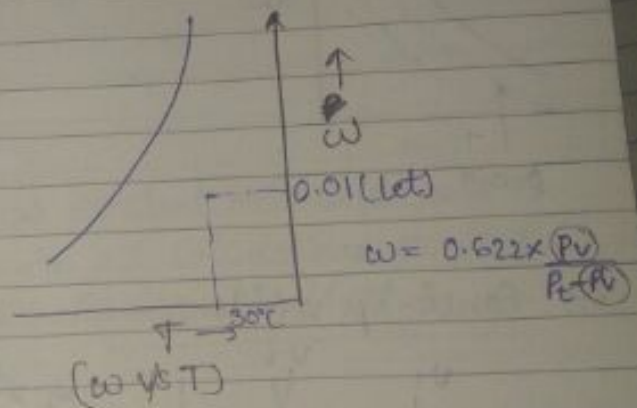 ω
0.01 (let)
ω = 0.622 × Pv
Pt-Pv
30°C
T →
(ω v/s T)